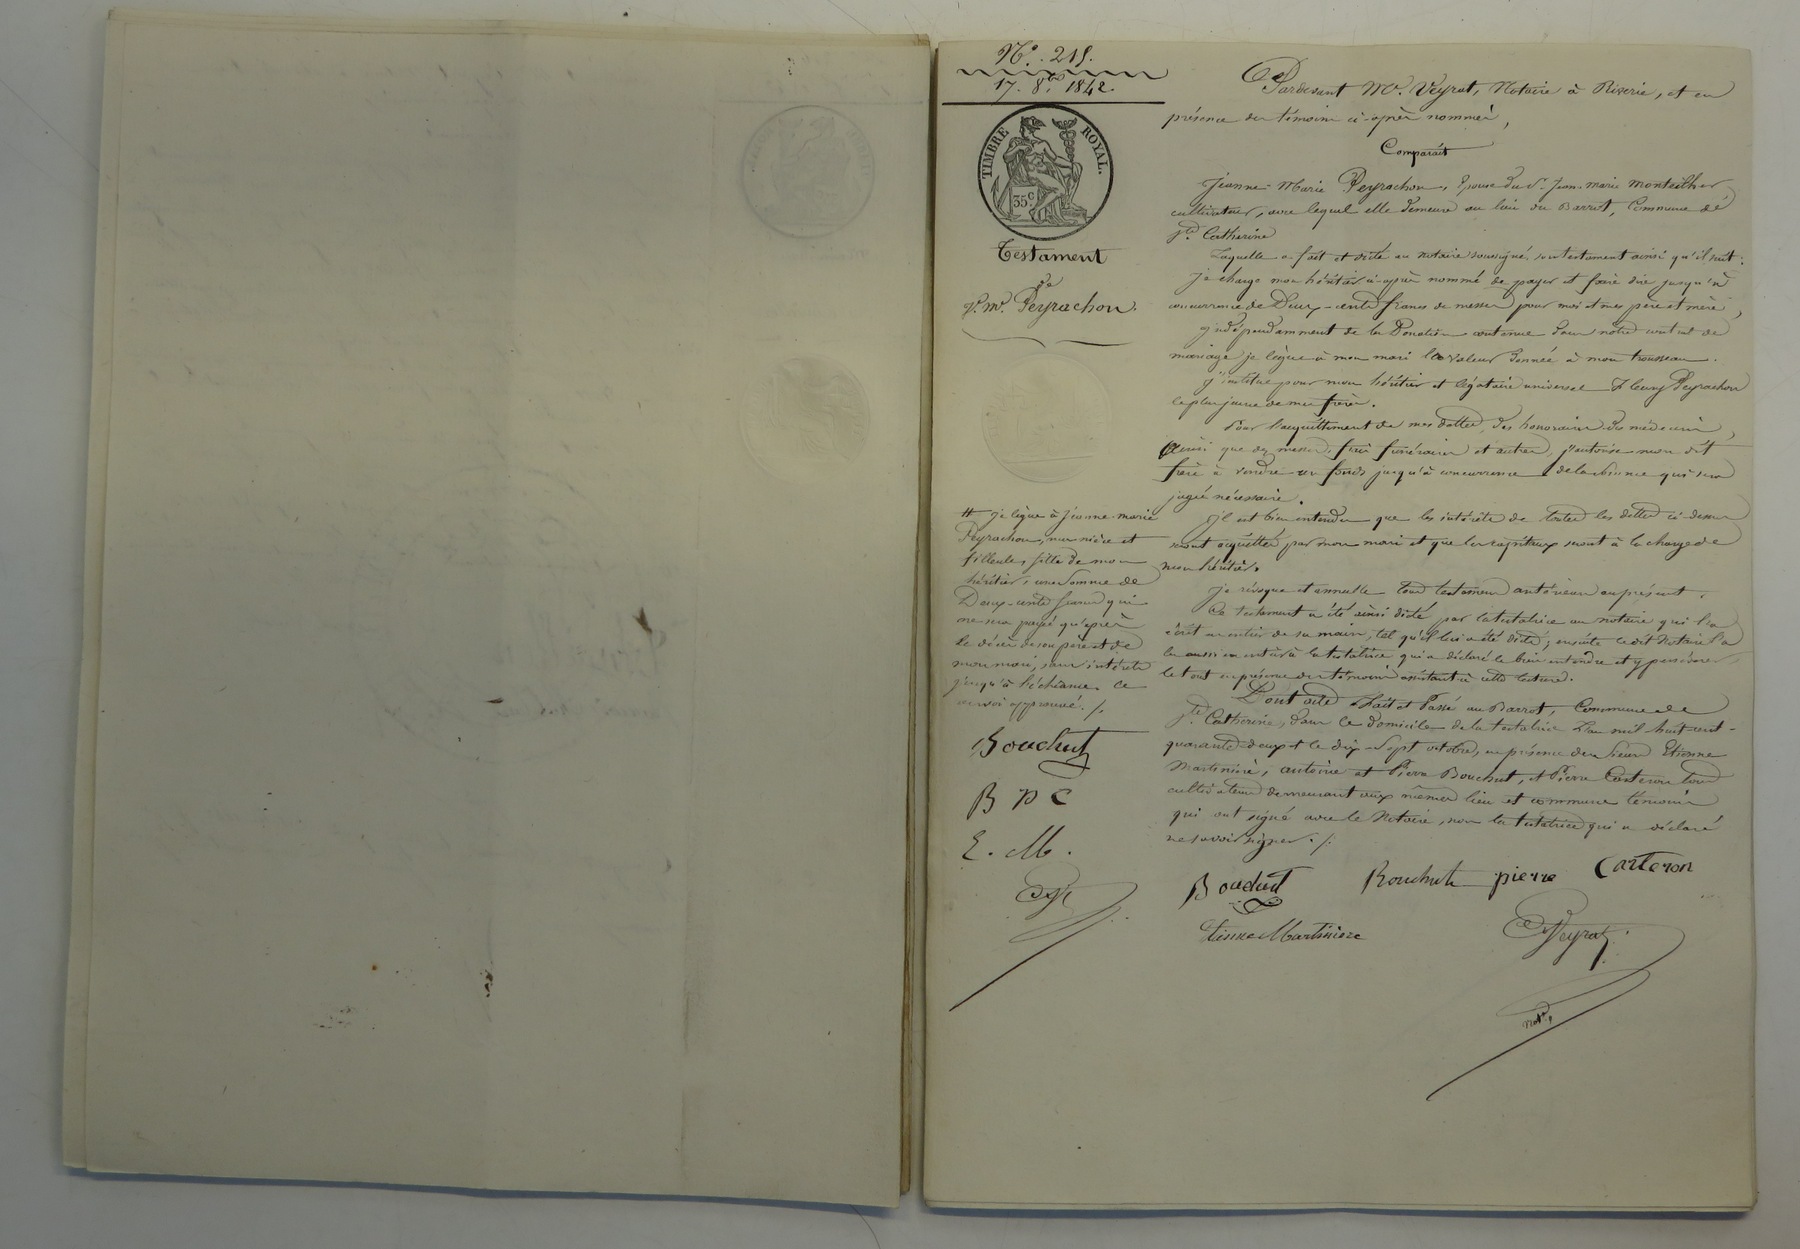 N.° 215.
17. 8bre 1842.
TIMBRE ROYAL.
35 c.
Testament
de
J. Me. Peyrachon.
Pardevant Me. Veyrat, Notaire à Riverie, et en
présence des témoins ci-après nommés,
Comparait
Jeanne-Marie Peyrachon, Epouse du Sr. Jean-marie Monteilher
cultivateur, avec lequel elle demeure au lieu du Barrot, Commune de
Ste. Catherine
Laquelle a fait et dicté au notaire soussigné, son testament ainsi qu'il suit:
Je charge mon héritier ci-après nommé de payer et faire dire jusqu'à
concurrence de Deux-cents francs de messes pour moi et mes père et mère,
indépendamment de la Donation contenue dans notre contrat de
mariage je lègue à mon mari la valeur donnée à mon trousseau.
J'institue pour mon héritier et légataire universel Fleury Peyrachon
le plus jeune de mes frères.
Pour l'acquittement de mes dettes, des honoraires des médecins,
ainsi que des messes, frais funéraires et autres, j'autorise mon dit
frère à vendre un fonds jusqu'à concurrence de la somme qui sera
jugée nécessaire.
Il est bien entendu que les intérêts de toutes les dettes ci-dessus
seront acquittés par mon mari et que les capitaux seront à la charge de
mon héritier.
Je révoque et annulle tous testamens antérieurs au présent.
Ce testament a été ainsi dicté par la testatrice au notaire qui l'a
écrit en entier de sa main, tel qu'il lui a été dicté; ensuite ledit Notaire l'a
lu aussi en entier à la testatrice qui a déclaré le bien entendre et y persévérer
le tout en présence des témoins assistant à cette lecture.
Dont acte Fait et Passé au Barrot, Commune de
Ste. Catherine, dans le domicile de la testatrice L'an mil huit cent-
quarante-deux et le dix-sept octobre, en présence des sieurs Etienne
Martinière, antoine et Pierre Bouchut, et Pierre Carteron tous
cultivateurs demeurant aux mêmes lieu et commune témoins
qui ont signé avec le Notaire, non la testatrice qui a déclaré
ne savoir signer. ./.
# Je lègue à Jeanne-marie
Peyrachon, ma nièce et
filleule, fille de mon
héritier, une somme de
Deux-cents francs qui
ne sera payée qu'après
le décès de son père et de
mon mari, sans intérêts
jusqu'à l'échéance. Ce
renvoi approuvé. ./.
Bouchut
B P C
E. M.
Bouchut
Bouchut pierre
Carteron
Etienne Martiniere
Veyrat
Not.re